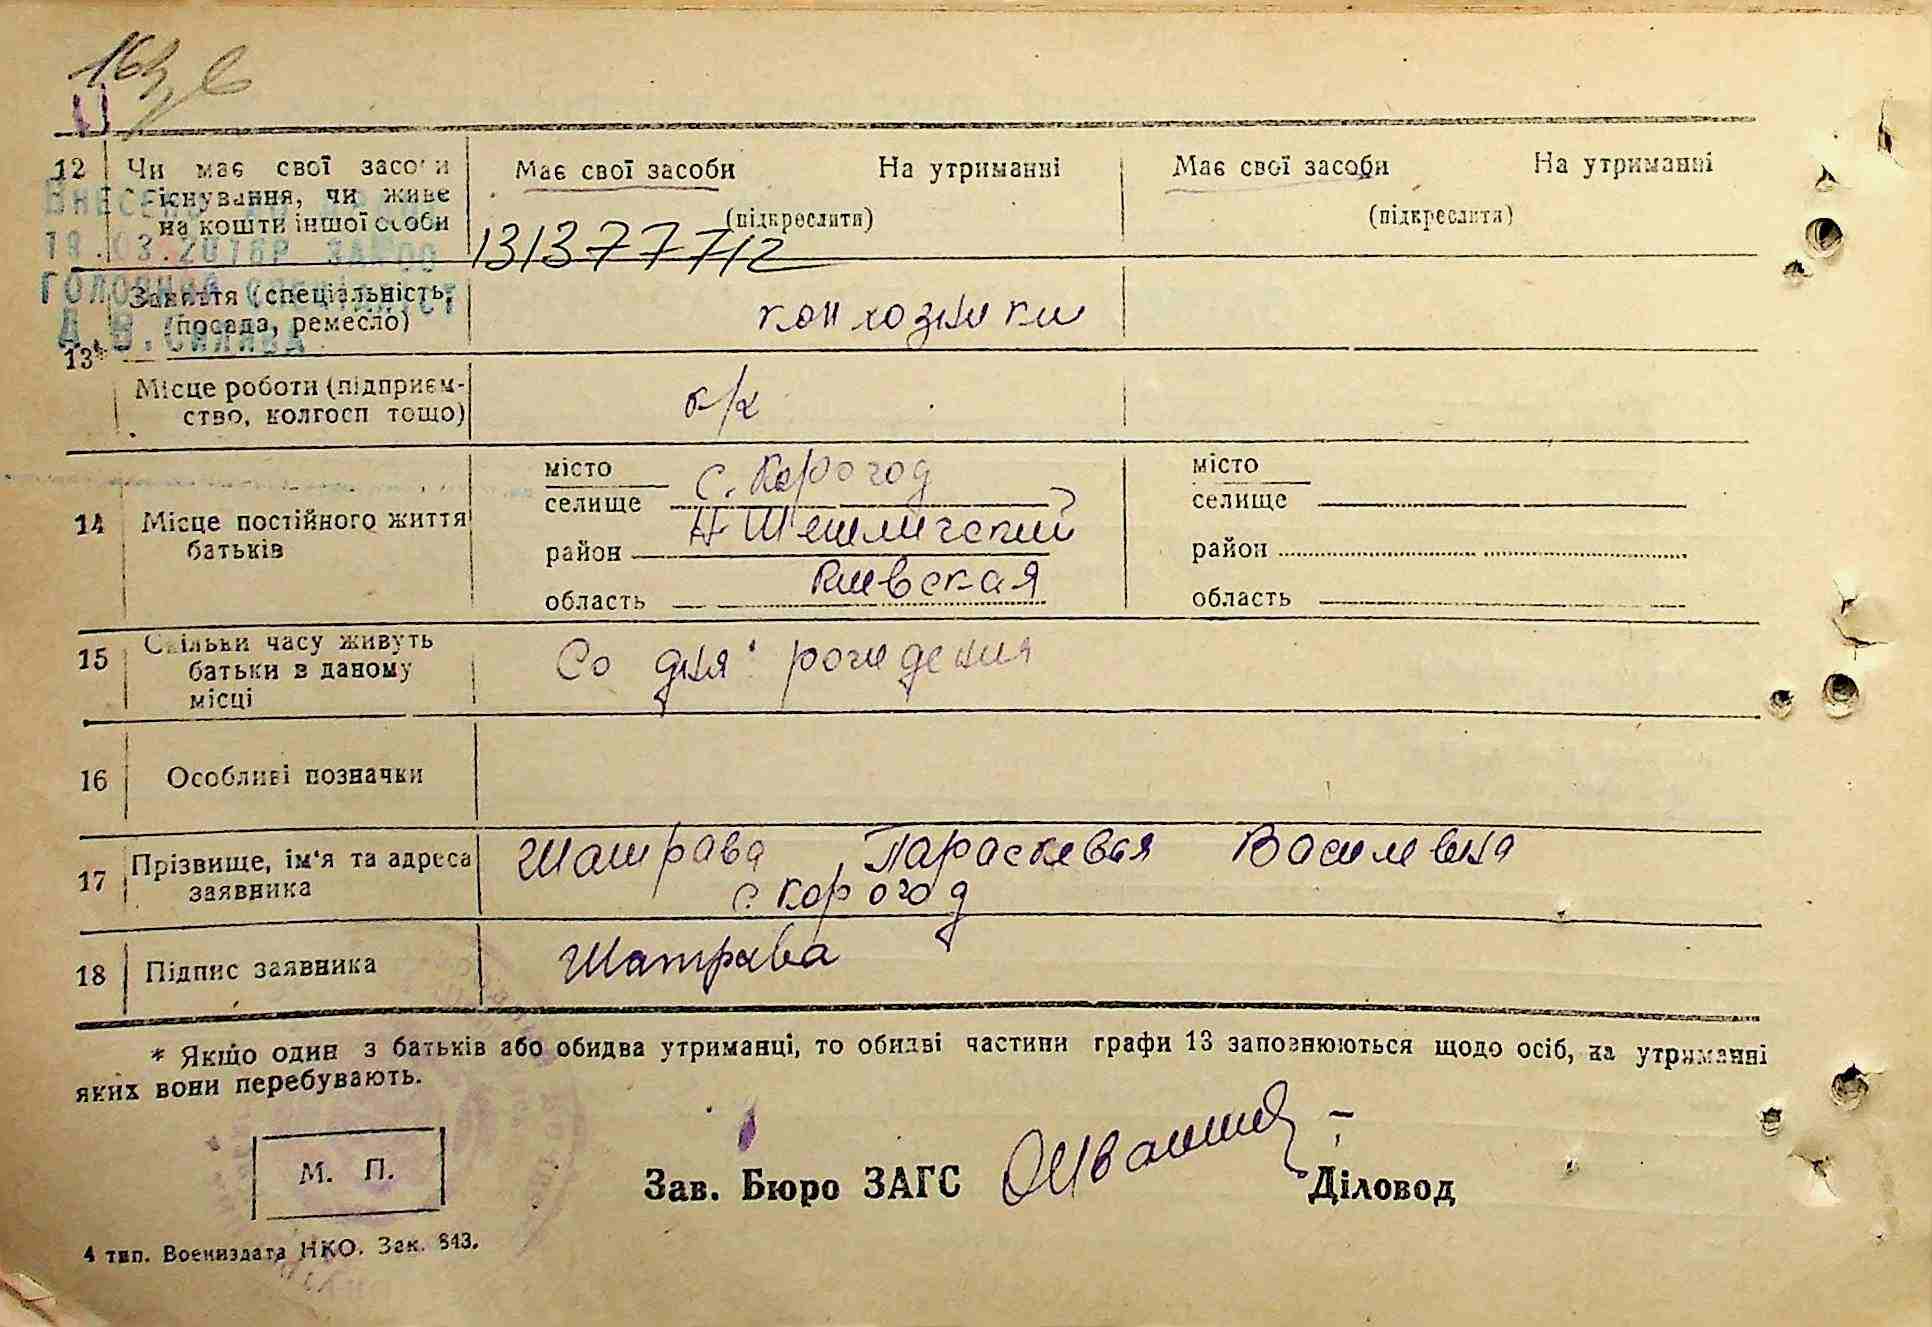 12 Чи має свої засоби існування, чи живе на кошти іншої особи
Має свої засоби На утриманні
(підкреслити)
Має свої засоби На утриманні
(підкреслити)
131377712
19.03.2018р.
ГОЛОВНИЙ СПЕЦІАЛІСТ
13*
Заняття (спеціальність, посада, ремесло)
колхозники
Місце роботи (підприємство, колгосп тощо)
к/х
14 Місце постійного життя батьків
місто
селище с. Корогод
район Н Шепиличский
область Киевская
місто
селище
район
область
15 Скільки часу живуть батьки в даному місці
Со дня рождения
16 Особливі позначки
17 Прізвище, ім'я та адреса заявника
Шатрава Параскевья Василевна
с. Корогод
18 Підпис заявника
Шатрава
* Якщо один з батьків або обидва утриманці, то обидві частини графи 13 заповнюються щодо осіб, на утриманні
яких вони перебувають.
М. П.
Зав. Бюро ЗАГС
Діловод
4 тип. Воениздата НКО. Зак. 843.